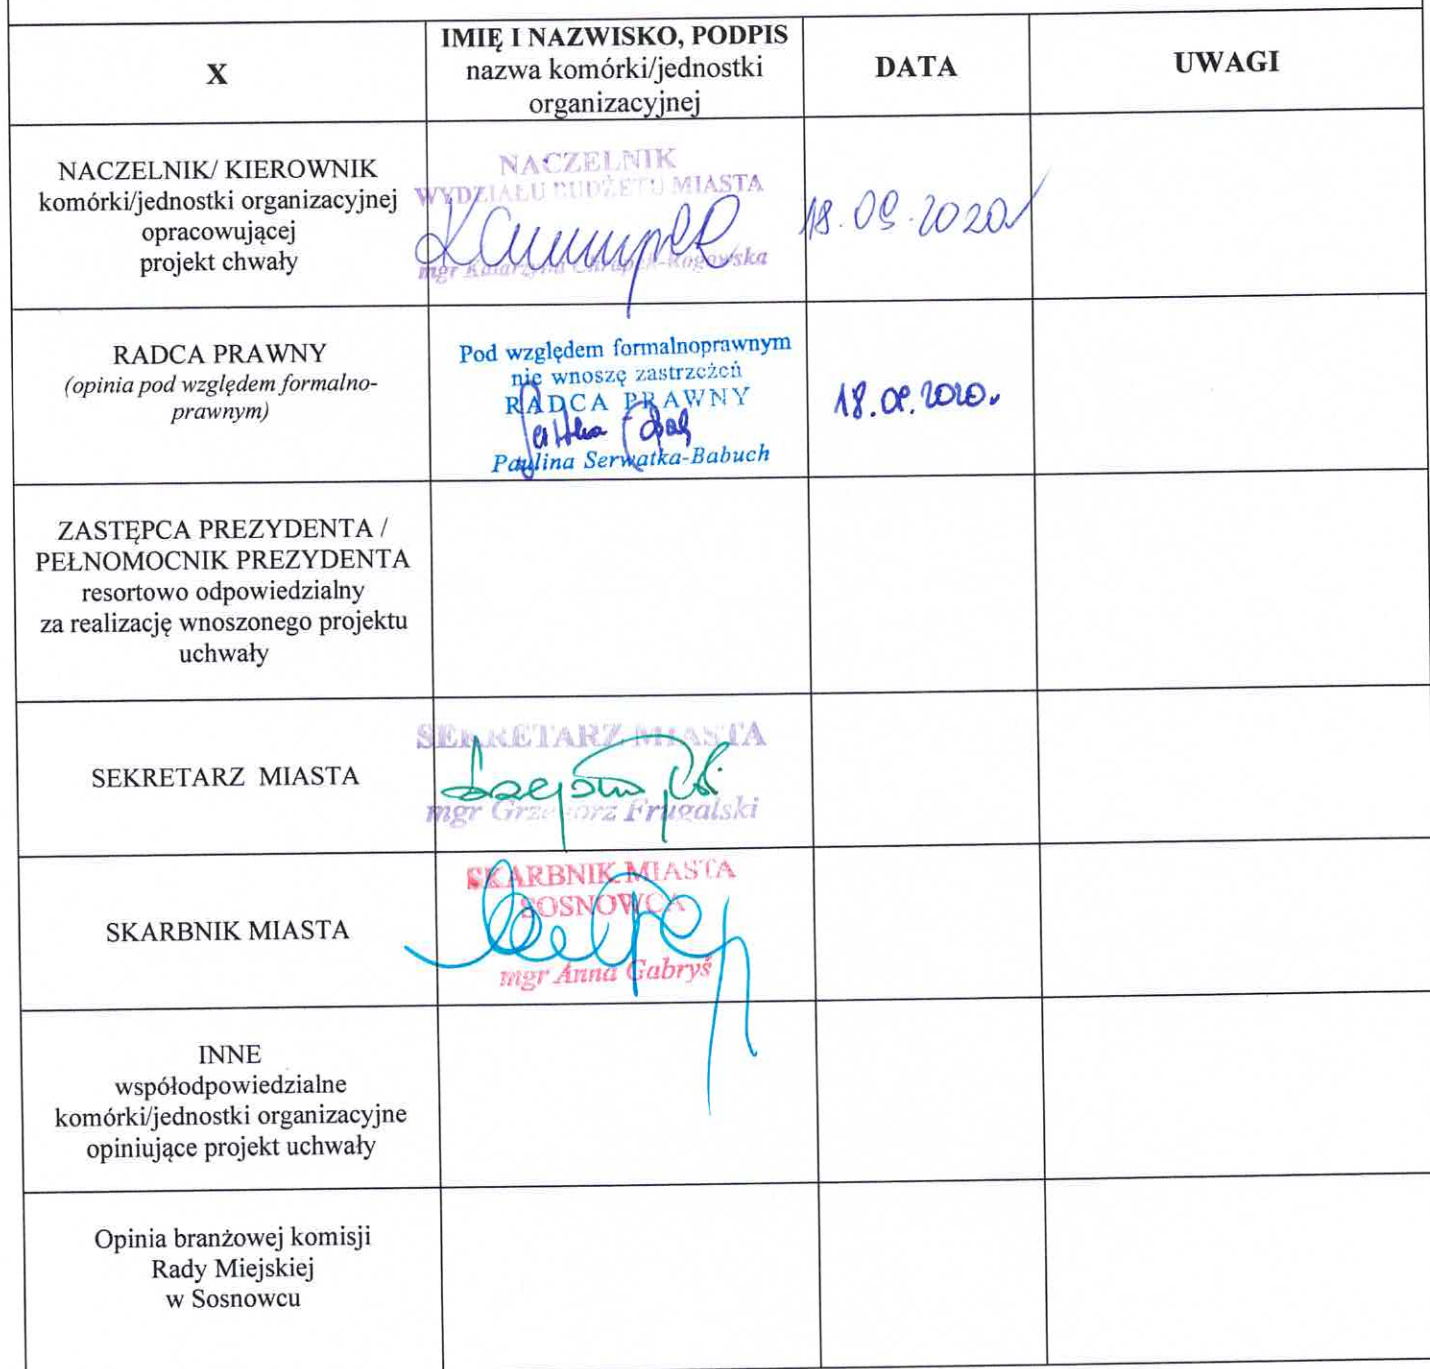 X
IMIĘ I NAZWISKO, PODPIS
nazwa komórki/jednostki
organizacyjnej
DATA
UWAGI
NACZELNIK/ KIEROWNIK
komórki/jednostki organizacyjnej
opracowującej
projekt chwały
NACZELNIK
WYDZIAŁU BUDŻETU MIASTA
mgr Katarzyna Chrapek-Rogowska
18.09.2020
RADCA PRAWNY
(opinia pod względem formalno-
prawnym)
Pod względem formalnoprawnym
nie wnoszę zastrzeżeń
RADCA PRAWNY
Paulina Serwatka-Babuch
18.09.2020.
ZASTĘPCA PREZYDENTA /
PEŁNOMOCNIK PREZYDENTA
resortowo odpowiedzialny
za realizację wnoszonego projektu
uchwały
SEKRETARZ MIASTA
SEKRETARZ MIASTA
mgr Grzegorz Frugalski
SKARBNIK MIASTA
SKARBNIK MIASTA
SOSNOWCA
mgr Anna Gabryś
INNE
współodpowiedzialne
komórki/jednostki organizacyjne
opiniujące projekt uchwały
Opinia branżowej komisji
Rady Miejskiej
w Sosnowcu